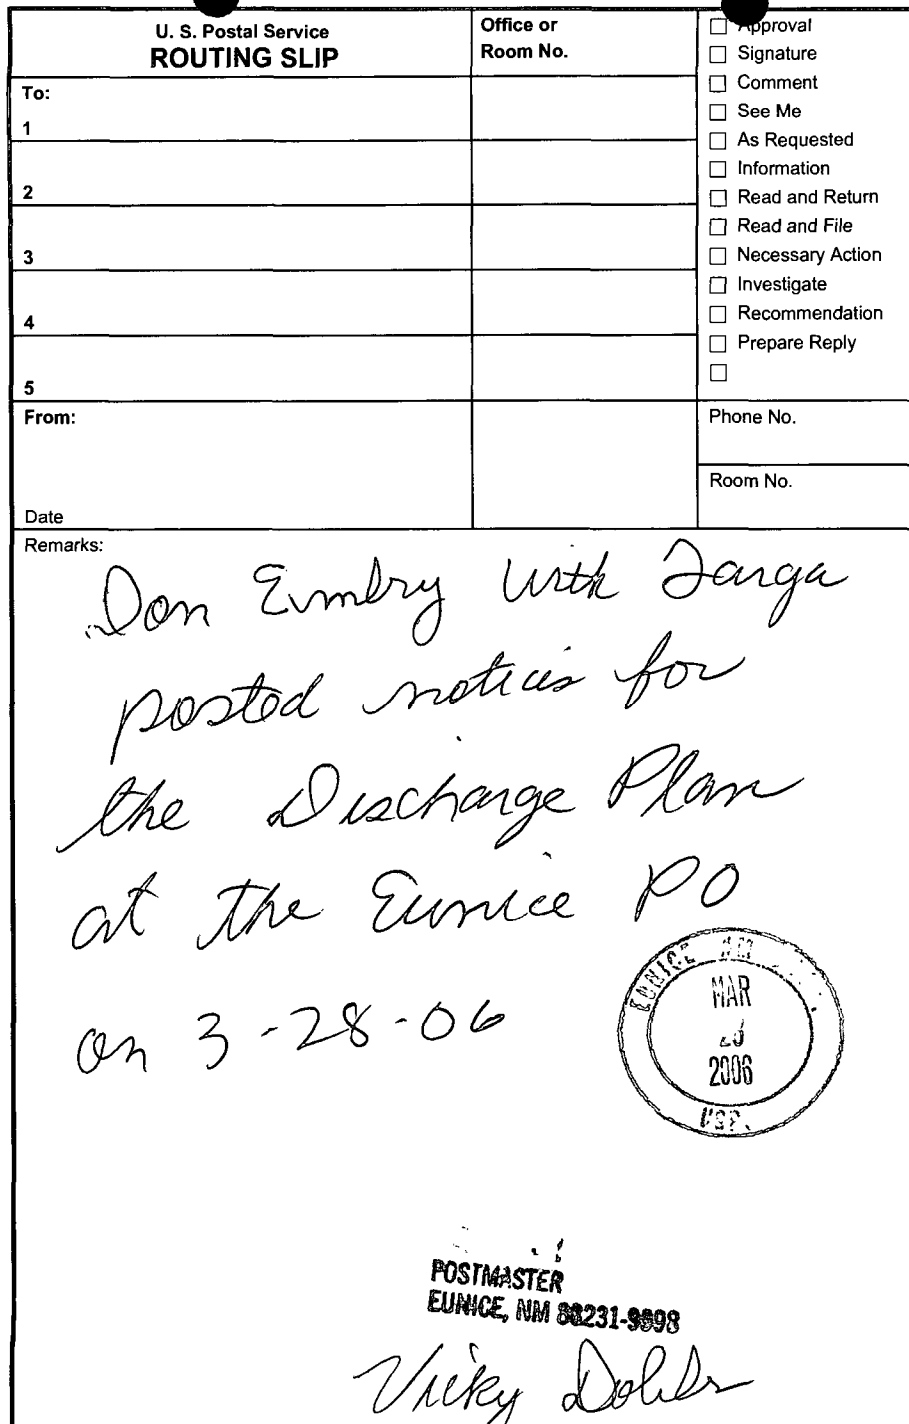 U. S. Postal Service
ROUTING SLIP
Office or
Room No.
To:
1
2
3
4
5
From:
Date
Approval
Signature
Comment
See Me
As Requested
Information
Read and Return
Read and File
Necessary Action
Investigate
Recommendation
Prepare Reply
Phone No.
Room No.
Remarks:
Don Embry with Targa
posted notices for
the Discharge Plan
at the Eunice PO
on 3-28-06
EUNICE NM
MAR
2006
POSTMASTER
EUNICE, NM 88231-9998
Vicky